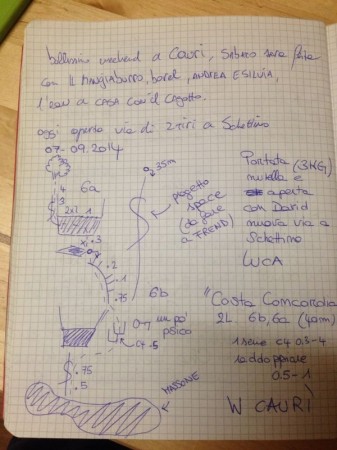 bellissimo weekend a Cauri, SABATO sera festa
con IL MANGIABURRO, borel, ANDREA E SILVIA,
a CASA
oggi aperto via di 2 tiri a Schettino
07-09.2014
35m
4
3
6a
2x1 1
.3
0.4
.2
.1
.75
progetto
space
(da fare
a FRIEND)
Portata (3KG)
nutella e
aperta
con David
nuova via a
Schettino
LUCA
6b
un po'
psico
.5
.75
.5
MASSONE
"Costa Concordia
2L 6b, 6a (40m)
1 serie C4 0.3-4
raddoppiare
0.5-1
W CAURI